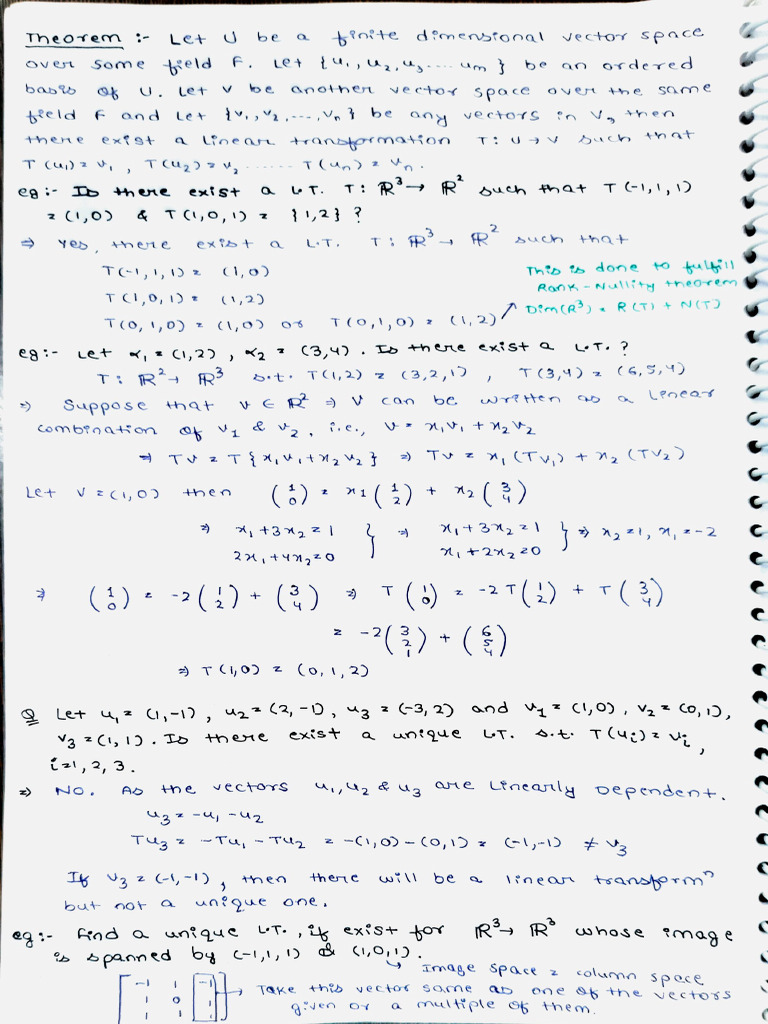 Theorem :- Let U be a finite dimensional vector space
over some field F. Let {u₁, u₂, u₃ .... um} be an ordered
basis of U. Let V be another vector space over the same
field F and Let {v₁, v₂, ..., vₙ} be any vectors in V, then
there exist a Linear transformation T: U → V such that
T(u₁) = v₁, T(u₂) = v₂ ....... T(uₙ) = vₙ.
eg:- Is there exist a L.T. T: ℝ³ → ℝ² such that T(-1,1,1)
= (1,0) & T(1,0,1) = {1,2} ?
⇒ Yes, there exist a L.T. T: ℝ³ → ℝ² such that
T(-1,1,1) = (1,0)
T(1,0,1) = (1,2)
T(0,1,0) = (1,0) or T(0,1,0) = (1,2)
This is done to fulfill
Rank-Nullity theorem
Dim(ℝ³) = R(T) + N(T)
eg:- Let α₁ = (1,2), α₂ = (3,4). Is there exist a L.T. ?
T: ℝ² → ℝ³ s.t. T(1,2) = (3,2,1), T(3,4) = (6,5,4)
⇒ Suppose that v ∈ ℝ² ⇒ v can be written as a Linear
combination of v₁ & v₂, i.e., v = x₁v₁ + x₂v₂
⇒ Tv = T{x₁v₁ + x₂v₂} ⇒ Tv = x₁(Tv₁) + x₂(Tv₂)
Let v = (1,0) then (1 0) = x₁(1 2) + x₂(3 4)
⇒ x₁ + 3x₂ = 1 } ⇒ x₁ + 3x₂ = 1 } ⇒ x₂ = 1, x₁ = -2
2x₁ + 4x₂ = 0 x₁ + 2x₂ = 0
⇒ (1 0) = -2(1 2) + (3 4) ⇒ T(1 0) = -2T(1 2) + T(3 4)
= -2(3 2 1) + (6 5 4)
⇒ T(1,0) = (0,1,2)
Q Let u₁ = (1,-1), u₂ = (2,-1), u₃ = (-3,2) and v₁ = (1,0), v₂ = (0,1),
v₃ = (1,1). Is there exist a unique L.T. s.t. T(uᵢ) = vᵢ,
i=1,2,3.
⇒ No. As the vectors u₁, u₂ & u₃ are Linearly Dependent.
u₃ = -u₁ - u₂
Tu₃ = -Tu₁ - Tu₂ = -(1,0) - (0,1) = (-1,-1) ≠ v₃
If v₃ = (-1,-1), then there will be a linear transformⁿ
but not a unique one.
eg:- Find a unique L.T., if exist for ℝ³ → ℝ³ whose image
is spanned by (-1,1,1) & (1,0,1).
↳ Image space = column space
[-1 1 -1] → Take this vector same as one of the vectors
1 0 1 given or a multiple of them.
1 1 1